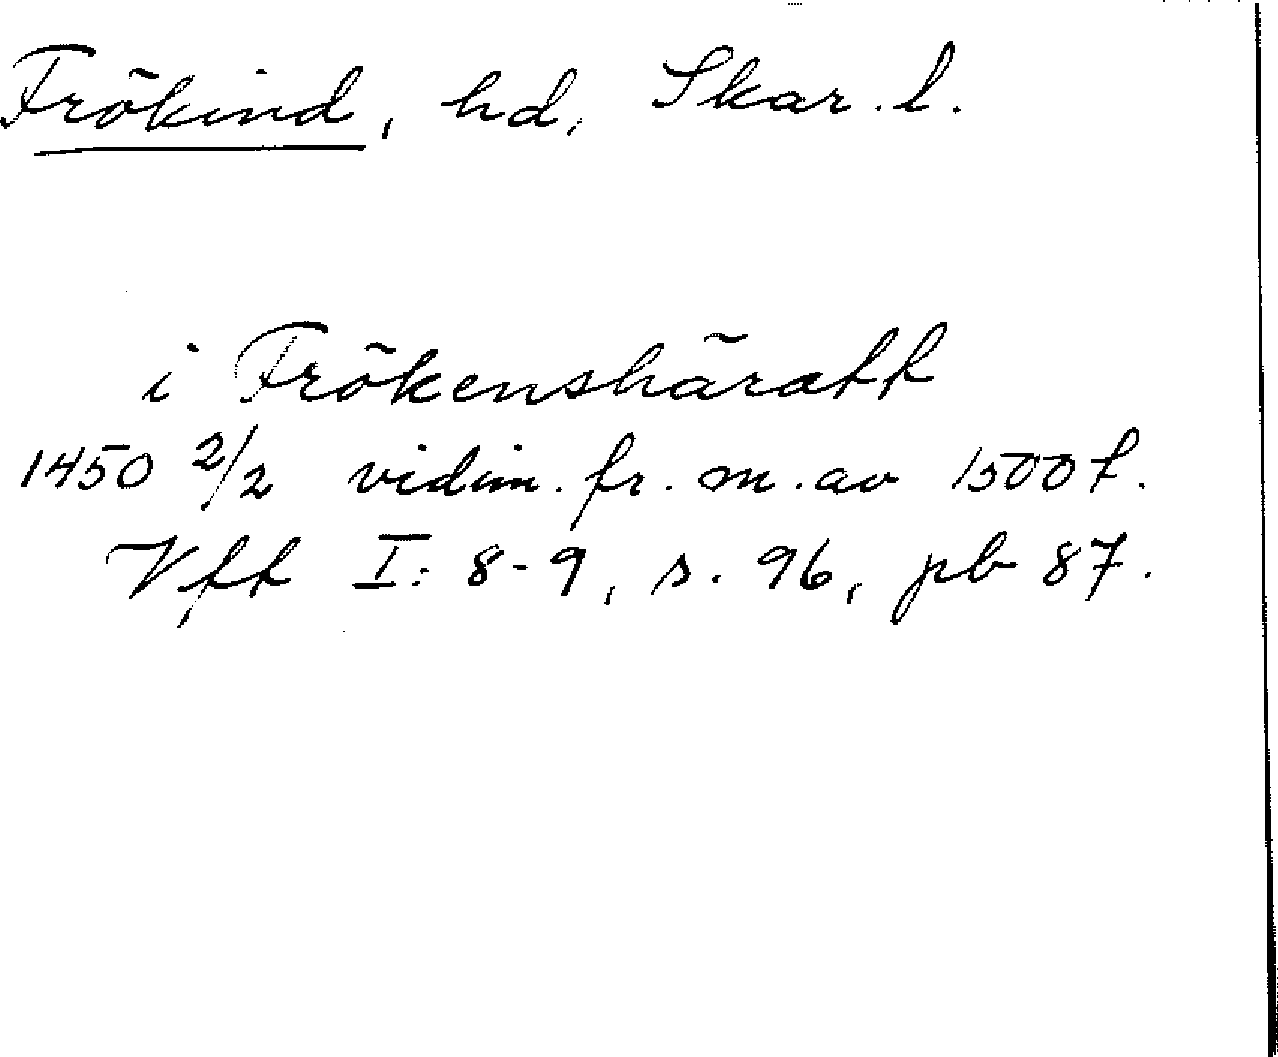 Frökind, hd, Skar. l.
i Frökenshäratt
1450 2/2 vidim. fr. m. av 1500 t.
Vft I: 8-9, s. 96, pb 87.